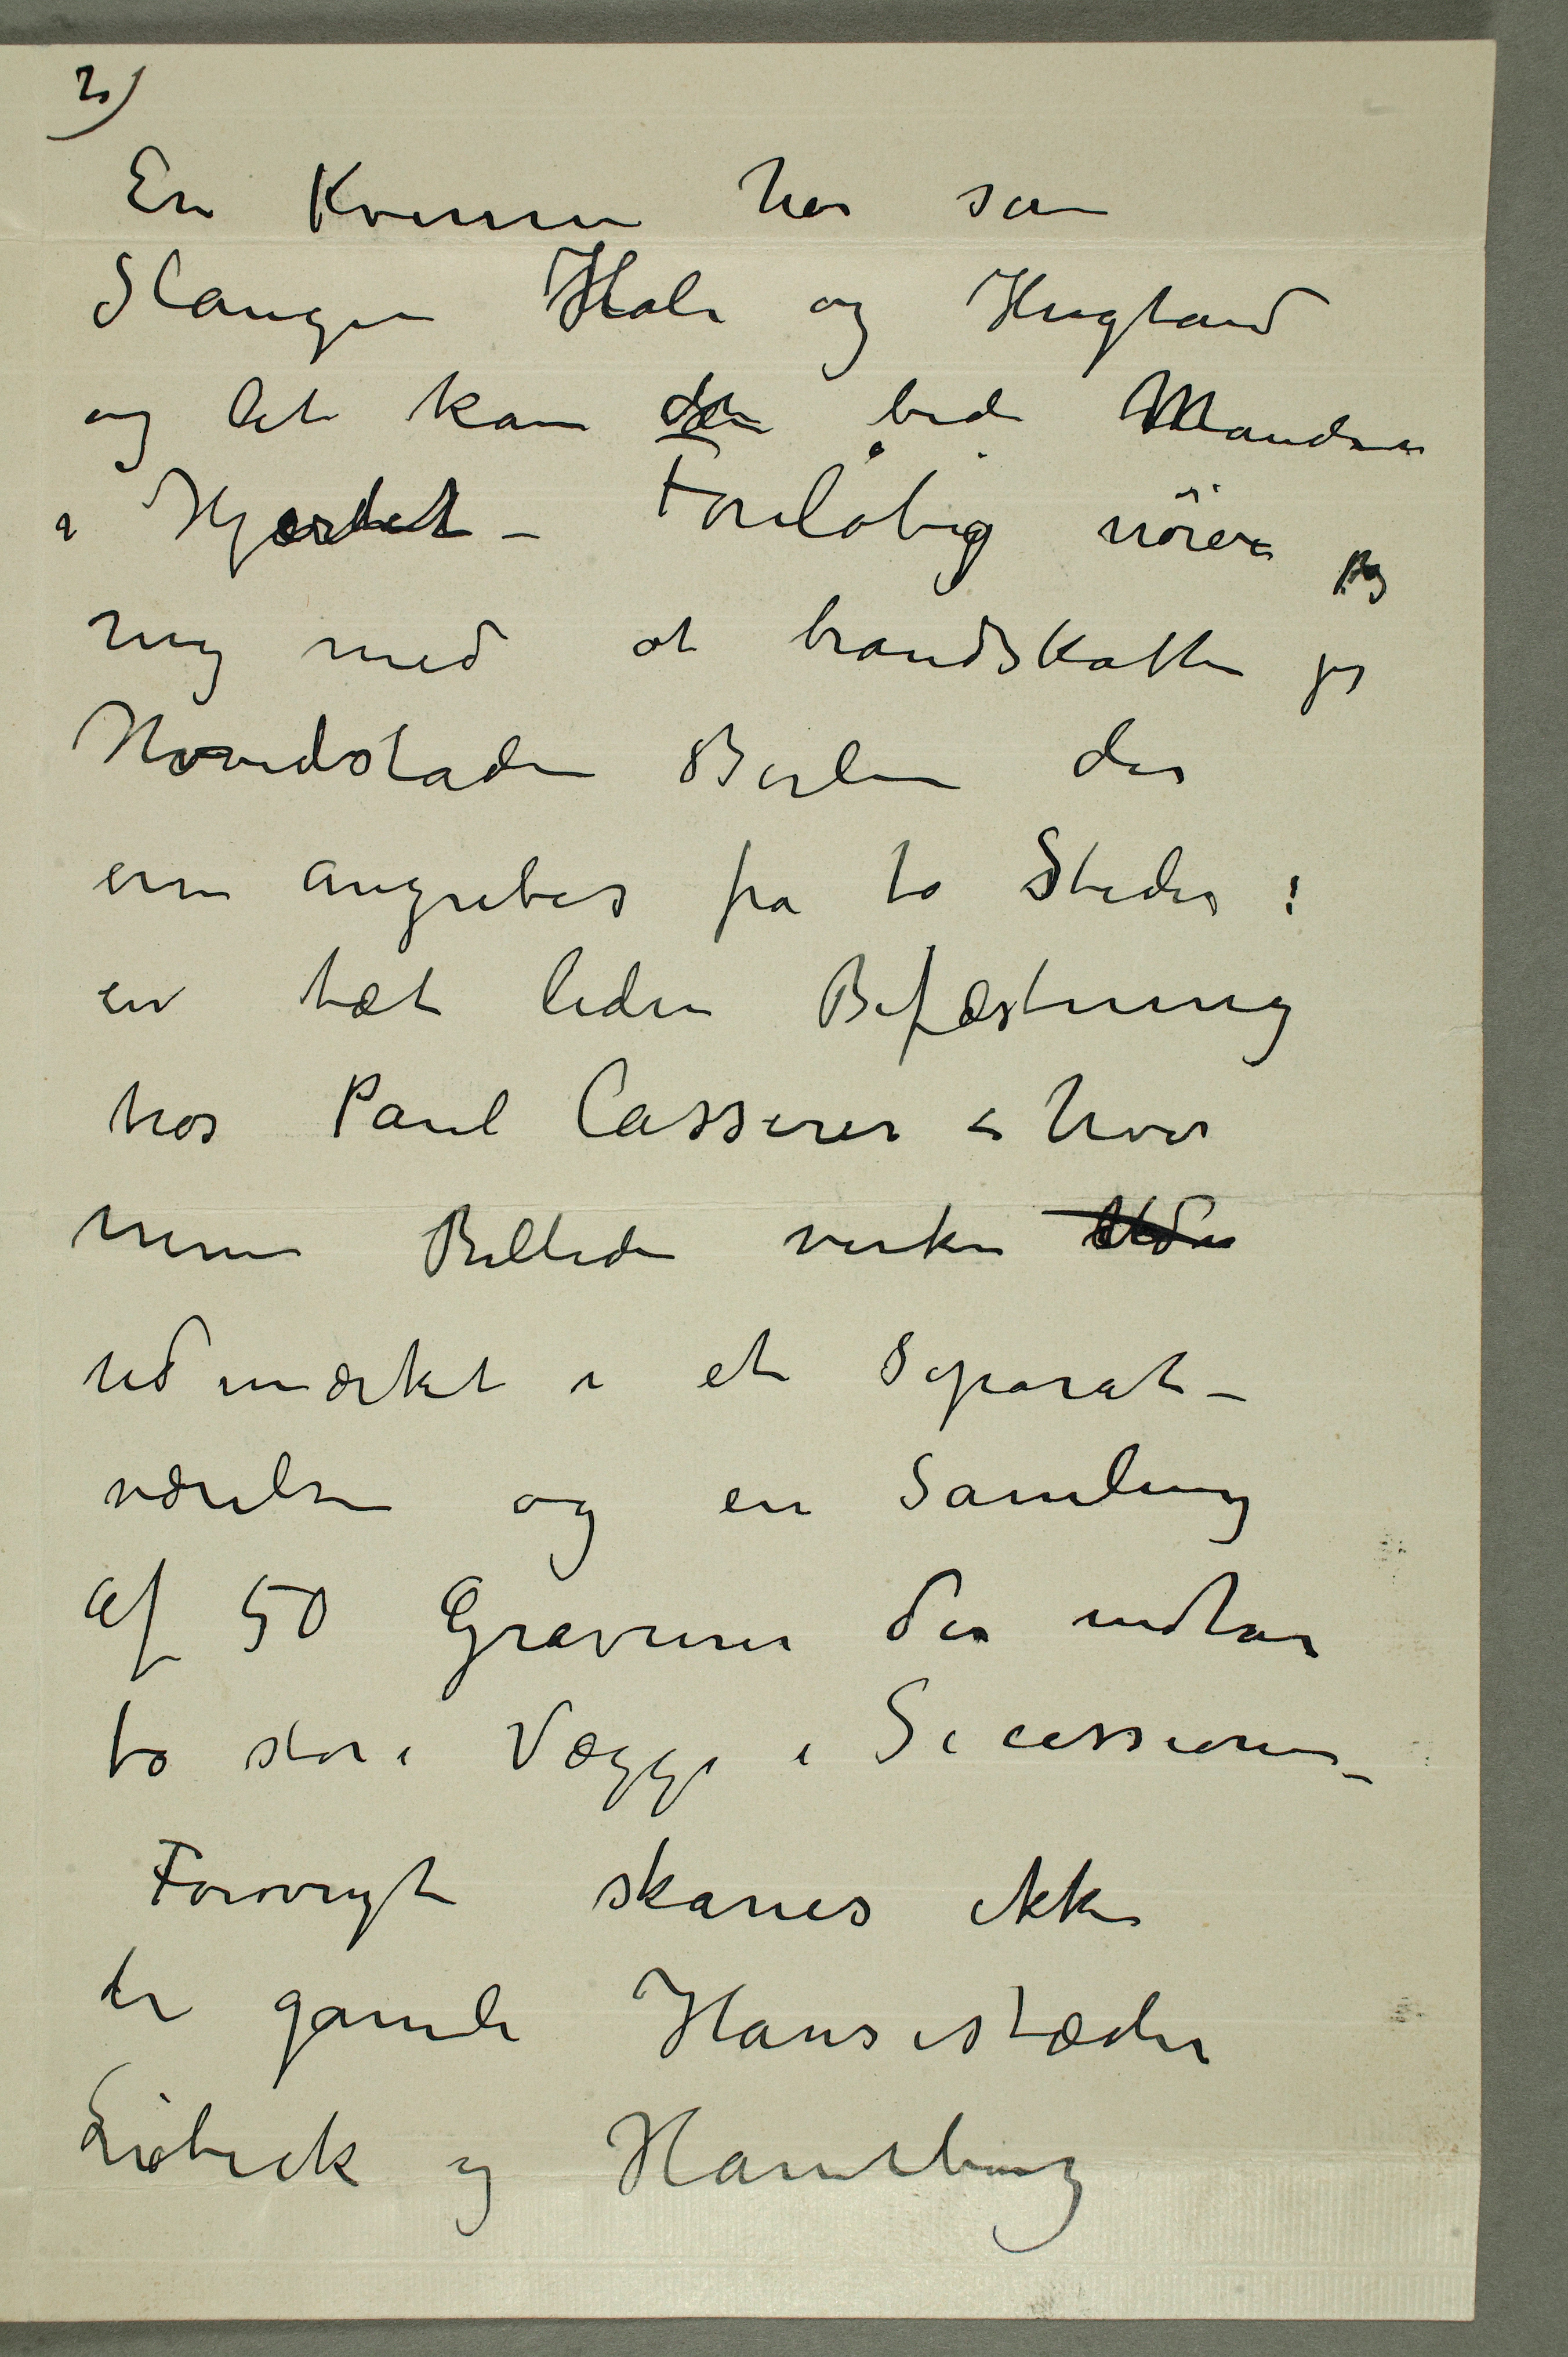 2)
En Kvinne har som
Slangen Hale og Hugtand
og let kan den bide Manden
i Hjertet – Foreløbig nøier jeg
mig med at brandskatte
Hovedstaden Berlin der
em angribes fra to Steder:
en tæt liden Befæstning
hos Paul Cassirer – hvor
mine Billeder virker
udmærket i et Separat-
værelse og en Samling
af 50 Gravurer der indtar
to store Vægge i Secessionen –
Forøvrigt skånes ikke
de gamle Hansestæder
Lübeck og Hamburg